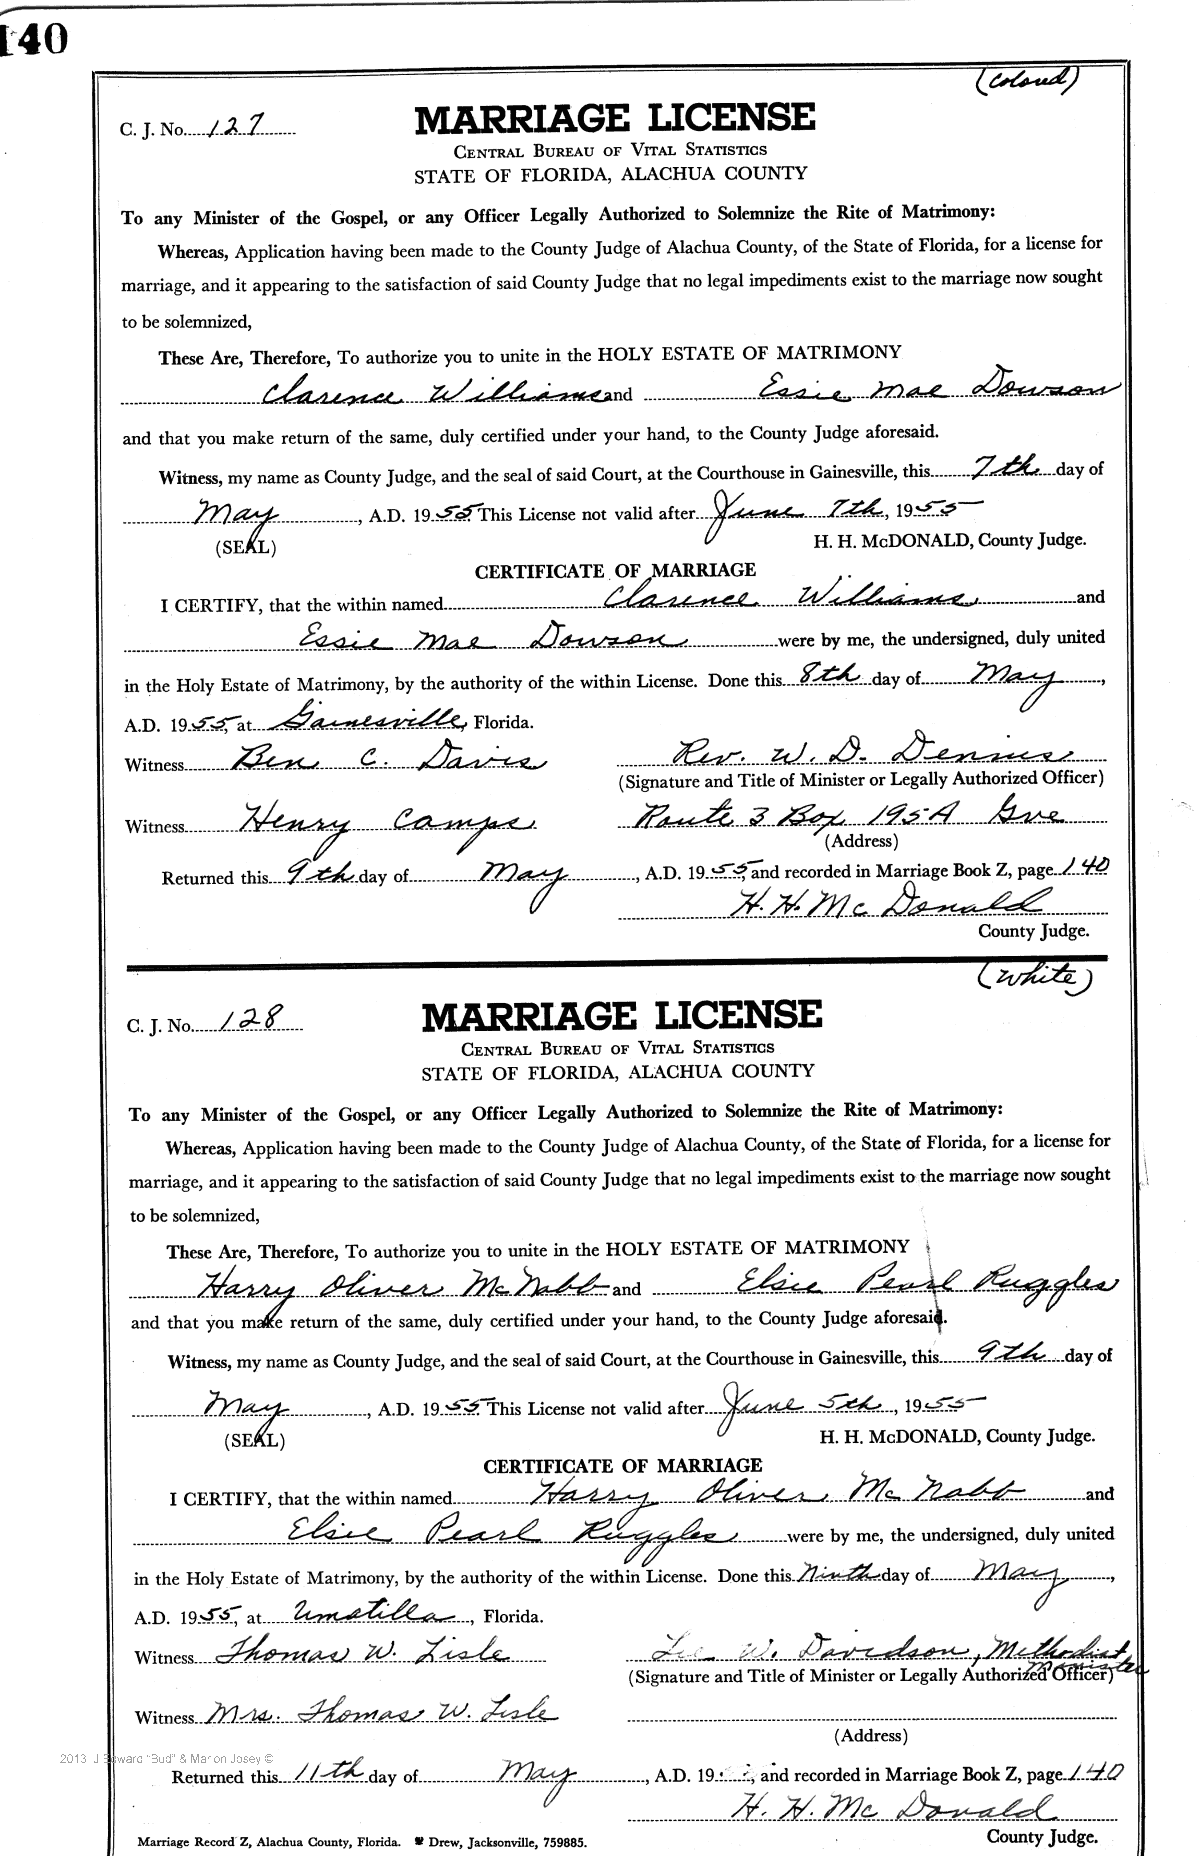 140
(Colored)
C. J. No. 127
MARRIAGE LICENSE
CENTRAL BUREAU OF VITAL STATISTICS
STATE OF FLORIDA, ALACHUA COUNTY
To any Minister of the Gospel, or any Officer Legally Authorized to Solemnize the Rite of Matrimony:
Whereas, Application having been made to the County Judge of Alachua County, of the State of Florida, for a license for
marriage, and it appearing to the satisfaction of said County Judge that no legal impediments exist to the marriage now sought
to be solemnized,
These Are, Therefore, To authorize you to unite in the HOLY ESTATE OF MATRIMONY
Clarence Williams and Essie Mae Dowson
and that you make return of the same, duly certified under your hand, to the County Judge aforesaid.
Witness, my name as County Judge, and the seal of said Court, at the Courthouse in Gainesville, this 7th day of
May, A.D. 1955. This License not valid after June 7th, 1955
(SEAL) H. H. McDONALD, County Judge.
CERTIFICATE OF MARRIAGE
I CERTIFY, that the within named Clarence Williams and
Essie Mae Dowson were by me, the undersigned, duly united
in the Holy Estate of Matrimony, by the authority of the within License. Done this 8th day of May,
A.D. 1955, at Gainesville, Florida.
Witness Ben C. Davis Rev. W. D. Dennis
(Signature and Title of Minister or Legally Authorized Officer)
Witness Henry Camps Route 3 Box 195A Gve
(Address)
Returned this 9th day of May, A.D. 1955, and recorded in Marriage Book Z, page 140
H. H. Mc Donald
County Judge.
(White)
C. J. No. 128
MARRIAGE LICENSE
CENTRAL BUREAU OF VITAL STATISTICS
STATE OF FLORIDA, ALACHUA COUNTY
To any Minister of the Gospel, or any Officer Legally Authorized to Solemnize the Rite of Matrimony:
Whereas, Application having been made to the County Judge of Alachua County, of the State of Florida, for a license for
marriage, and it appearing to the satisfaction of said County Judge that no legal impediments exist to the marriage now sought
to be solemnized,
These Are, Therefore, To authorize you to unite in the HOLY ESTATE OF MATRIMONY
Harry Oliver McNabb and Elsie Pearl Ruggles
and that you make return of the same, duly certified under your hand, to the County Judge aforesaid.
Witness, my name as County Judge, and the seal of said Court, at the Courthouse in Gainesville, this 9th day of
May, A.D. 1955. This License not valid after June 5th, 1955
(SEAL) H. H. McDONALD, County Judge.
CERTIFICATE OF MARRIAGE
I CERTIFY, that the within named Harry Oliver Mc Nabb and
Elsie Pearl Ruggles were by me, the undersigned, duly united
in the Holy Estate of Matrimony, by the authority of the within License. Done this Ninth day of May,
A.D. 1955, at Umatilla, Florida.
Witness Thomas W. Lisle Lee W. Davidson, Methodist
Minister
(Signature and Title of Minister or Legally Authorized Officer)
Witness Mrs. Thomas W. Lisle
(Address)
2013 J Edward "Bud" & Marion Josey ©
Returned this 11th day of May, A.D. 19 , and recorded in Marriage Book Z, page 140
H. H. Mc Donald
County Judge.
Marriage Record Z, Alachua County, Florida. Drew, Jacksonville, 759885.